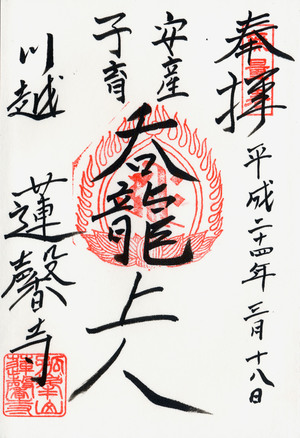 奉拝
平成二十四年三月十八日
安産
子育
呑龍上人
川越
蓮馨寺